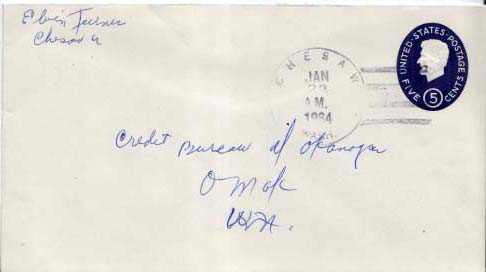 Chesaw
UNITED·STATES·POSTAGE
FIVE 5 CENTS
CHESAW
JAN
A.M.
WASH.
Credit Bureau of Okanogan
Omak
WA.